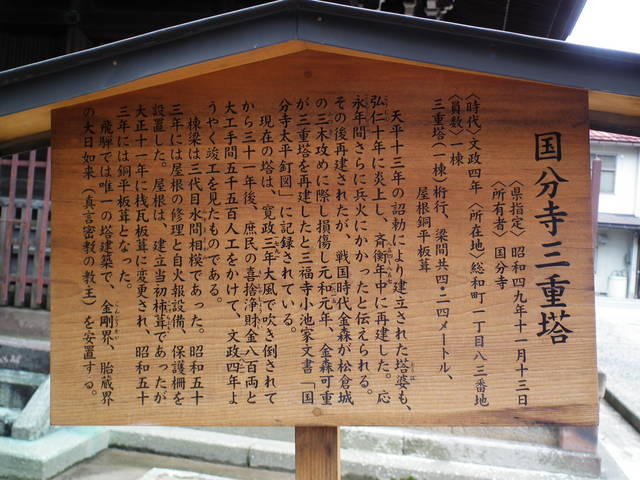 国分寺三重塔
〈県指定〉昭和四九年十一月十三日
〈所有者〉国分寺
〈時代〉文政四年〈所在地〉総和町一丁目八三番地
〈員数〉一棟
三重塔(一棟)桁行、梁間共四・二四メートル、
屋根銅平板葺
天平十三年の詔勅により建立された塔婆も、
弘仁十年に炎上し、斉衡年中に再建した。応
永年間さらに兵火にかかったと伝えられる。
その後再建されたが、戦国時代金森が松倉城
の三木攻めに際し損傷し元和元年、金森可重
が三重塔を再建したと三福寺小池家文書「国
分寺太平釘図」に記録されている。
現在の塔は、寛政三年大風で吹き倒されて
から三十一年後、庶民の喜捨浄財金八百両と
大工手間五千五百人工をかけて、文政四年よ
うやく竣工を見たものである。
棟梁は三代目水間相模であった。昭和五十
三年には屋根の修理と自火報設備、保護柵を
設置した。屋根は、建立当初柿葺であったが
大正十一年に桟瓦板葺に変更され、昭和五十
三年には銅平板葺となった。
飛騨では唯一の塔建築で、金剛界、胎蔵界
の大日如来(真言密教の教主)を安置する。